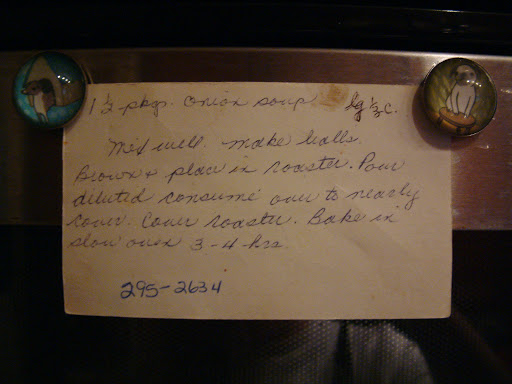 1 ½ pkgs. onion soup lg ½ c.
Mix well. make balls.
Brown & place in roaster. Pour
diluted consume over to nearly
cover. Cover roaster. Bake in
slow oven 3-4-hrs.
295-2634